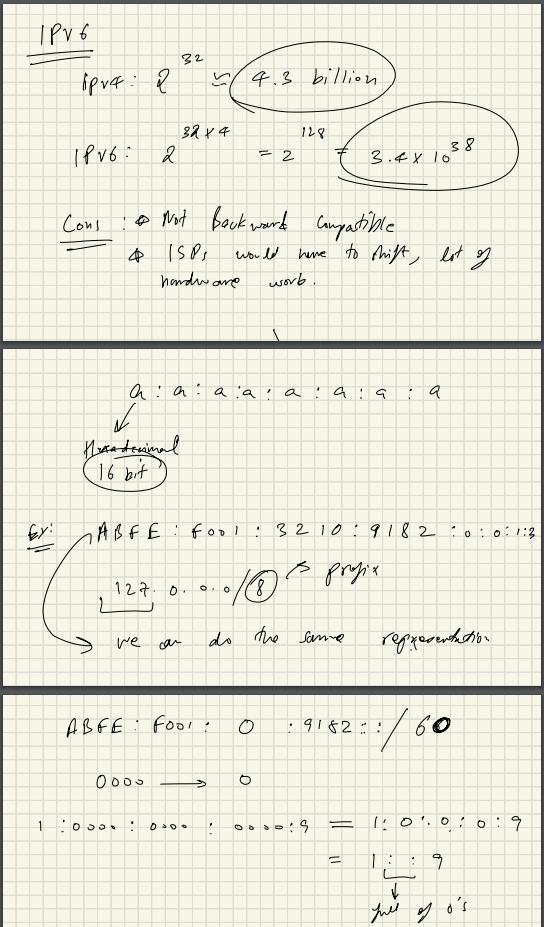 IPv6
ipv4: 2^32 ≈ 4.3 billion
IPv6: 2^32x4 = 2^128 = 3.4 x 10^38
Cons : Not Backward Compatible
ISPs would have to shift, lot of
hardware work.
a : a : a : a : a : a : a : a
Hexadecimal
16 bit
Ex: ABFE : F001 : 3210 : 9182 : 0 : 0 : 1:3
127. 0. 0. 0/8 prefix
we can do the same representation
ABFE : F001 : 0 : 9182 :: / 60
0000 → 0
1 : 0000 : 0000 : 0000 : 9 = 1: 0 : 0 : 0 : 9
= 1 : : 9
full of 0's